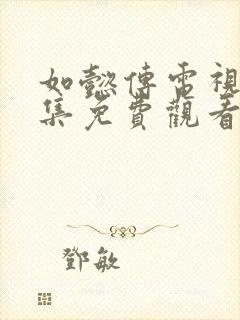 如懿傳電視
集免費觀看
鄧敏